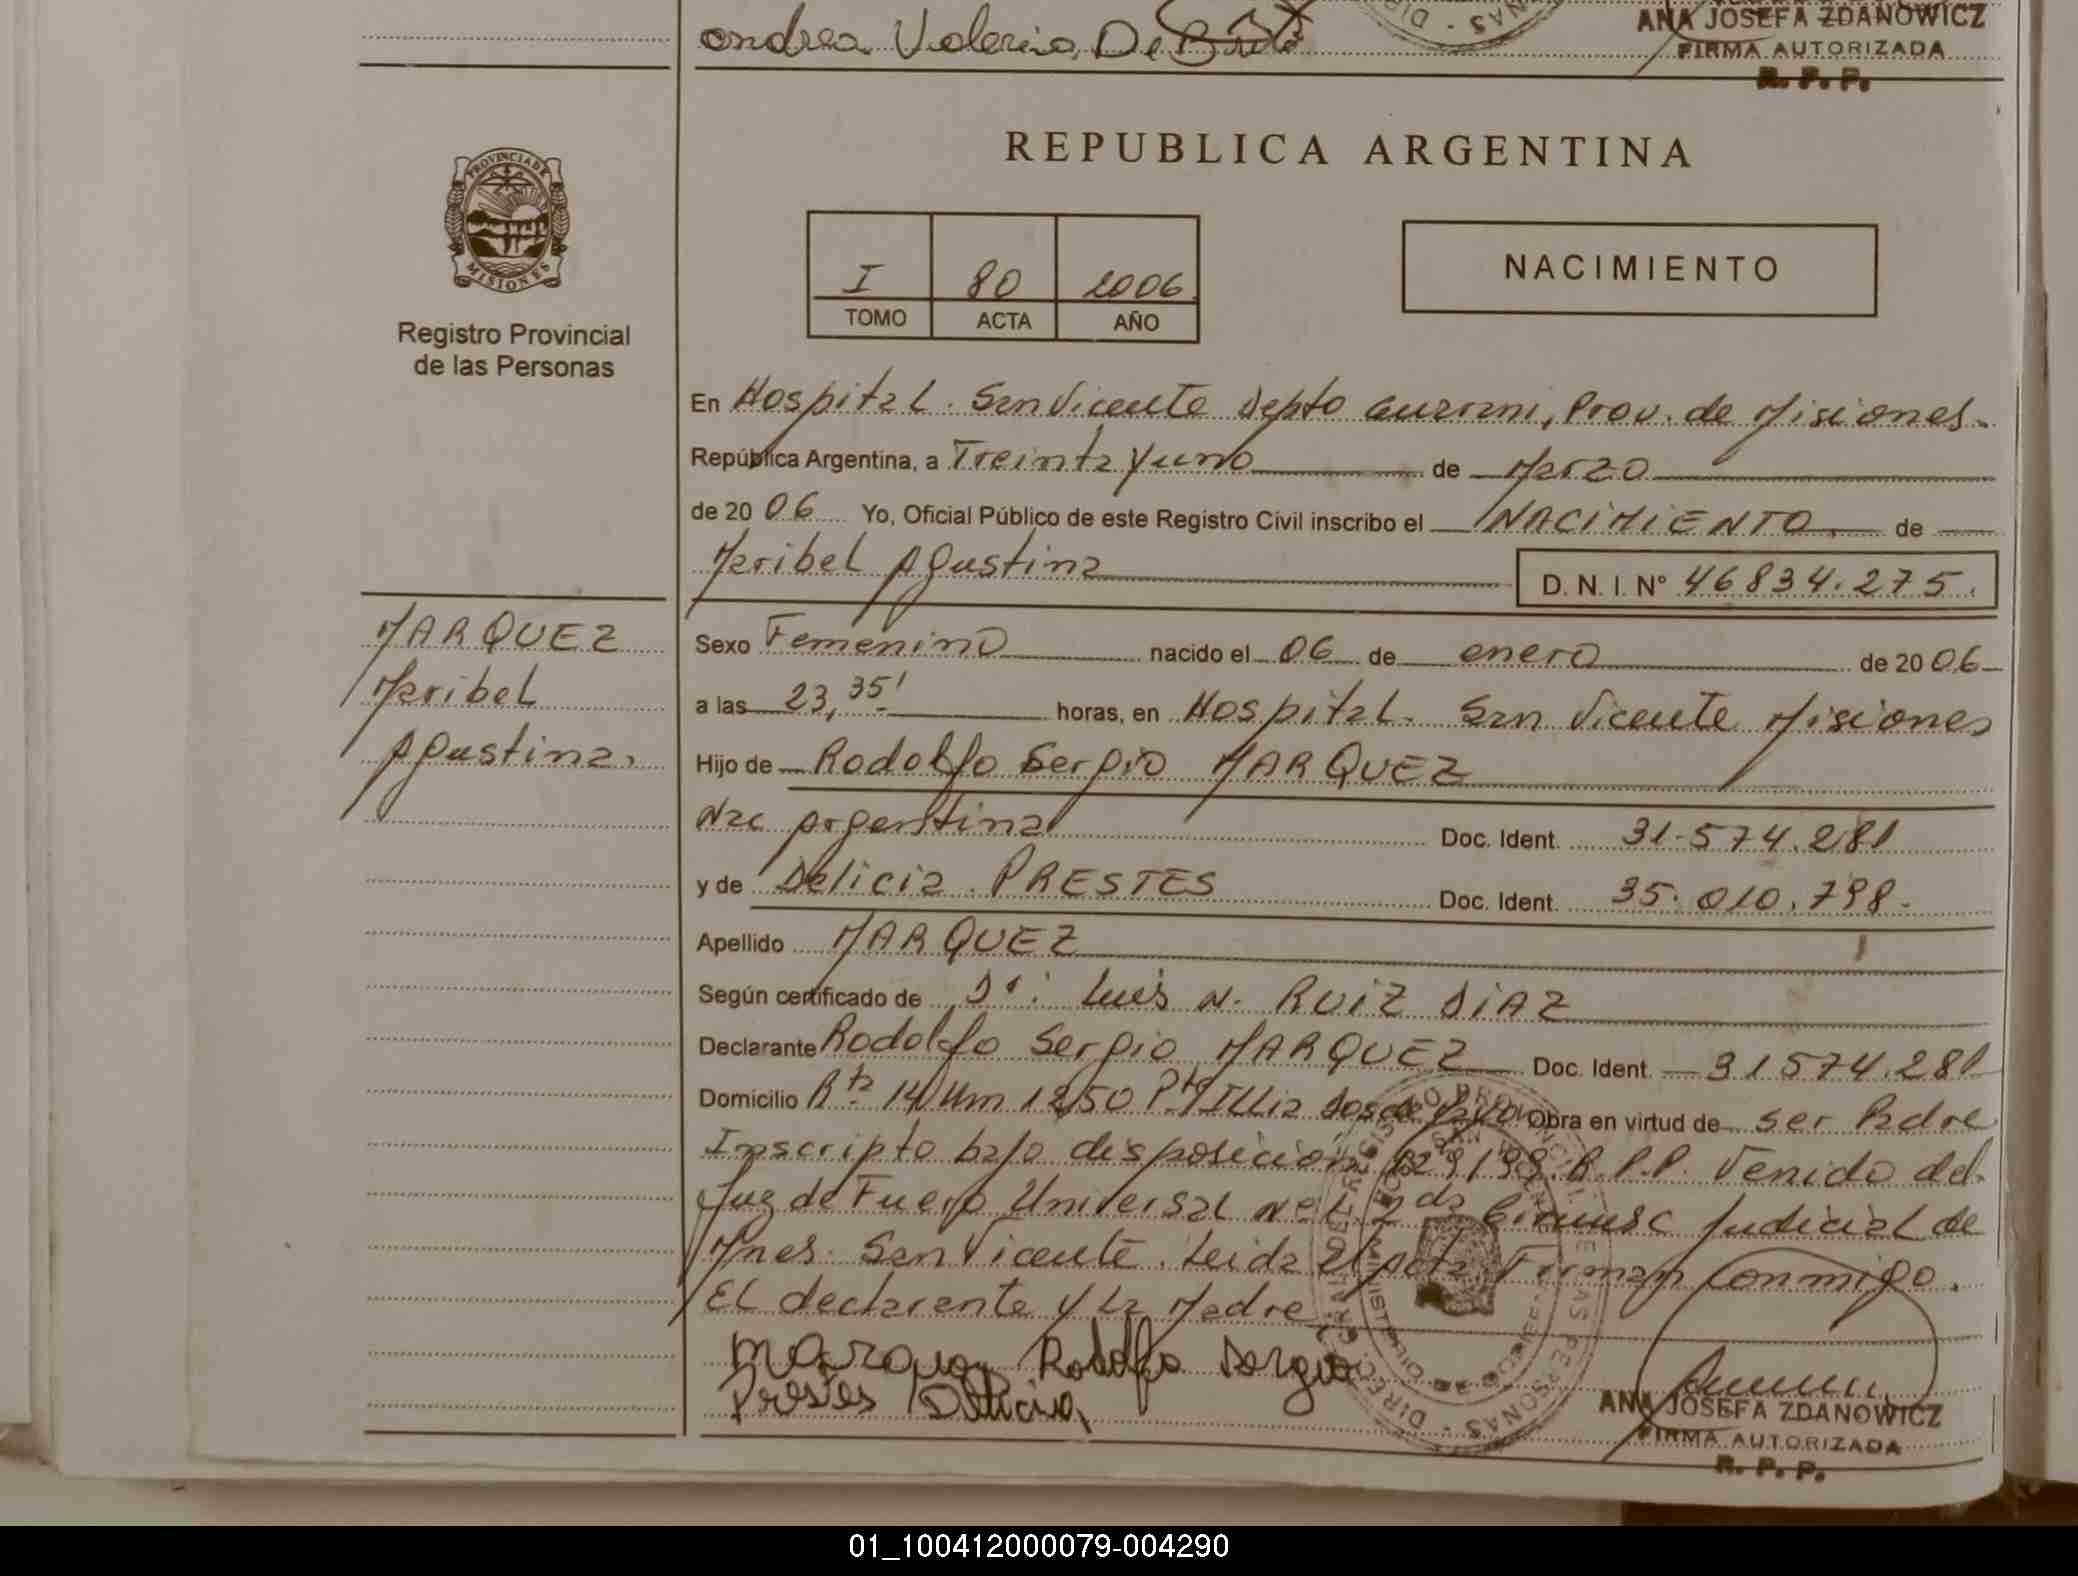 andrea Valeria, De
ANA JOSEFA ZDANOWICZ
FIRMA AUTORIZADA
R. P. P.
PROVINCIA DE MISIONES
Registro Provincial
de las Personas
REPUBLICA ARGENTINA
I 80 2006
TOMO ACTA AÑO
NACIMIENTO
En Hospital. San Vicente depto Guarani, Prov. de Misiones.
República Argentina, a Treinta y uno de Marzo
de 2006 Yo, Oficial Público de este Registro Civil inscribo el NACIMIENTO de
Maribel Agustina D. N. I. N° 46834.275.
MARQUEZ
Maribel
Agustina.
Sexo Femenino nacido el 06 de enero de 2006
a las 23,35' horas, en Hospital. San Vicente Misiones
Hijo de Rodolfo Sergio MARQUEZ
Nac argentina Doc. Ident. 31.574.281
y de Delicia. PRESTES Doc. Ident. 35.010.798.
Apellido MARQUEZ
Según certificado de Dr. Luis N. RUIZ DIAZ
Declarante Rodolfo Sergio MARQUEZ Doc. Ident. 31574.281
Domicilio Rta 14 Km 1250 Obra en virtud de ser Padre
Inscripto bajo disposición R.P.P. Venido del
Juz de Fuero Universal Nº 1 2da Circunsc Judicial de
Mnes. San Vicente. Leida el acta Firman conmigo.
El declarante y la Madre
Marquez Rodolfo Sergio
Prestes Delicia
ANA JOSEFA ZDANOWICZ
FIRMA AUTORIZADA
R. P. P.
01_100412000079-004290